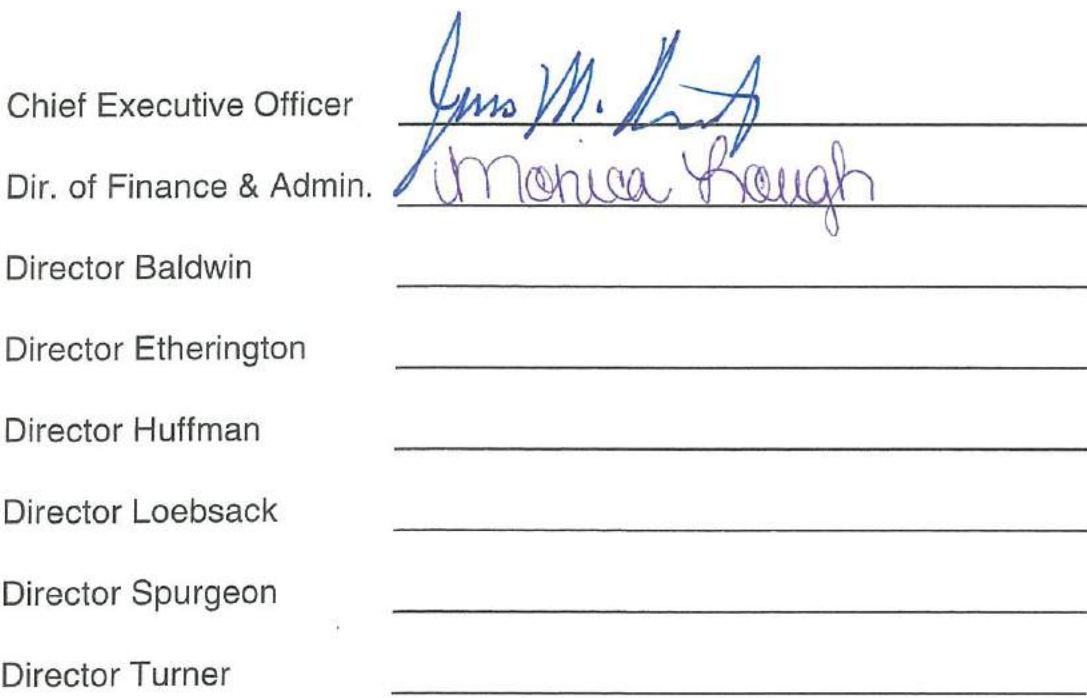 Chief Executive Officer
Dir. of Finance & Admin. Monica Lough
Director Baldwin
Director Etherington
Director Huffman
Director Loebsack
Director Spurgeon
Director Turner